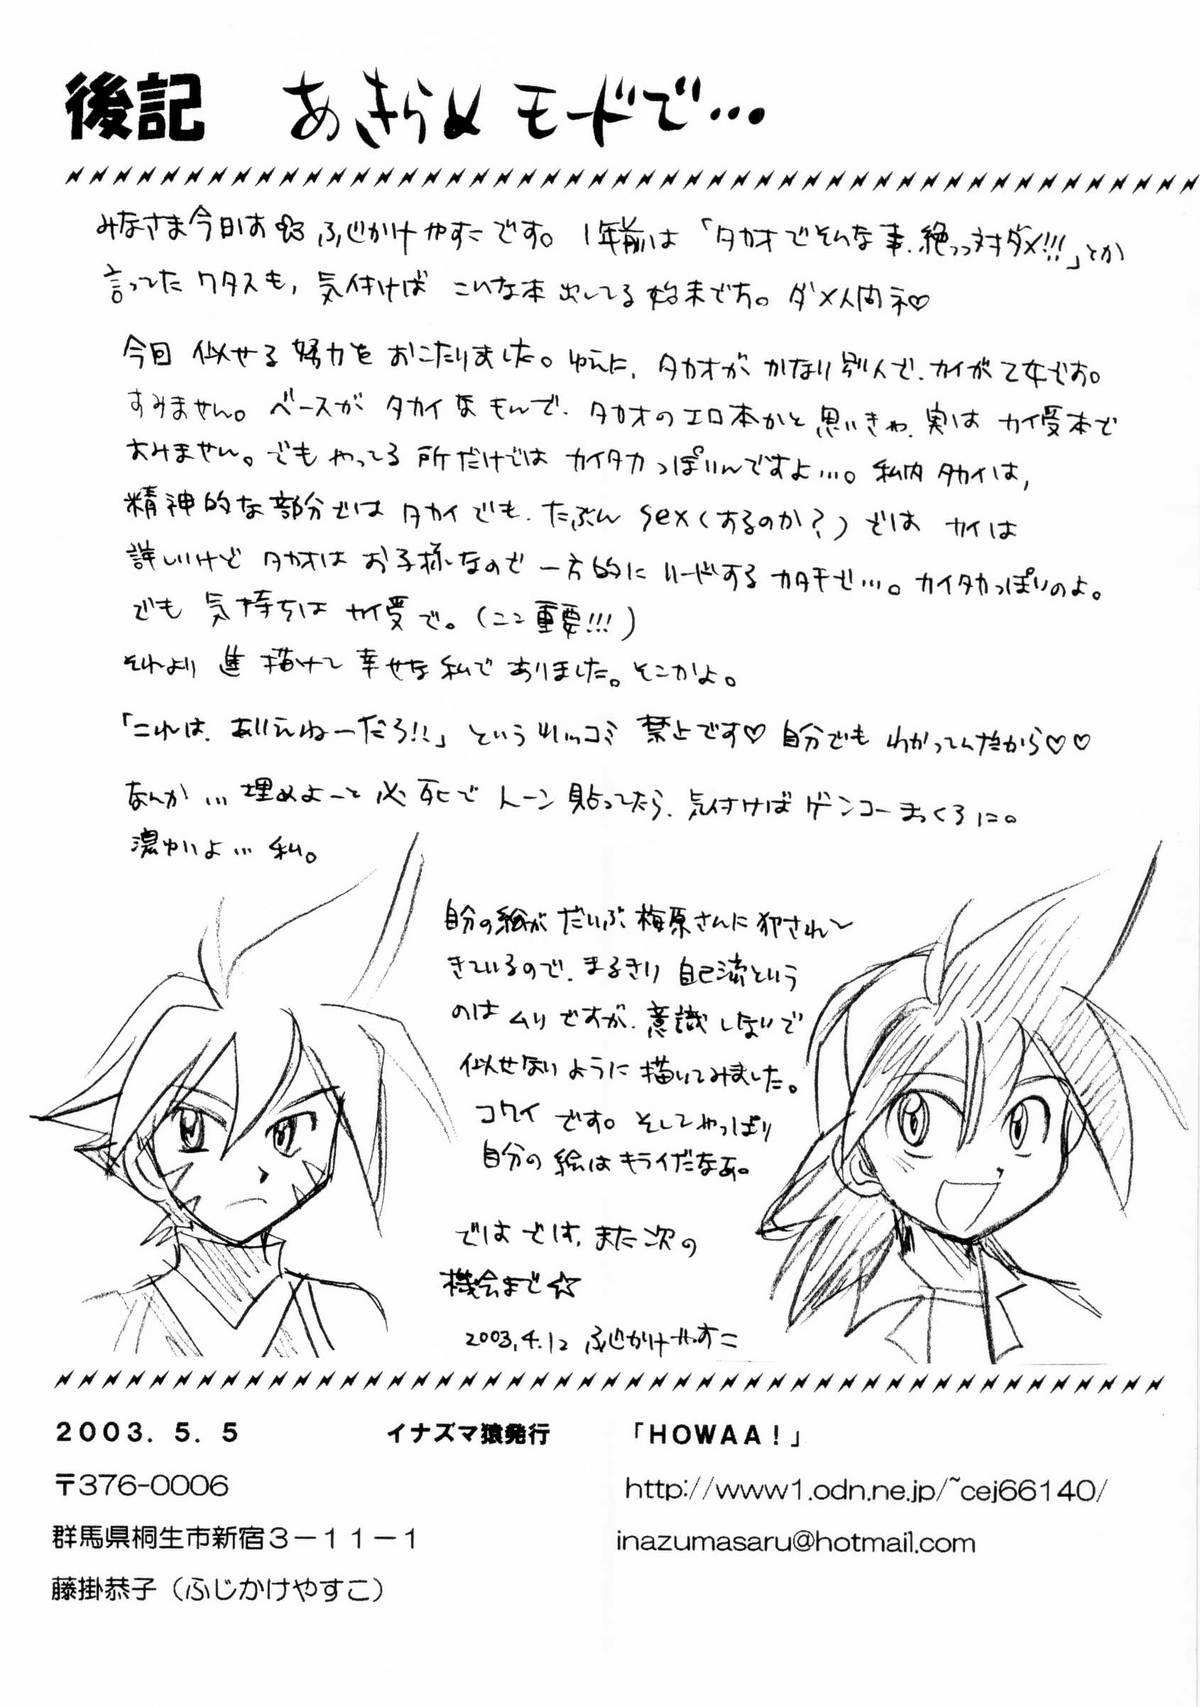 後記　あきらめモードで…
みなさま今日はふじかけやすこです。1年前は「タカオでそんな事、絶っっ対ダメ!!!」とか
言ってたワタスも、気付けばこんな本出してる始末で方。ダメ人間ネ♡
今回似せる努力をおこたりました。ゆえに、タカオがかなり別人で、カイが乙女です。
すみません。ベースがタカイなもんで、タカオのエロ本かと思いきや、実はカイ受本で
すみません。でもやってる所だけではカイタカっぽいんですよ…。私内タカイは、
精神的な部分ではタカイでも、たぶんsex(するのか?)ではカイは
詳しいけどタカオはお子様なので一方的にリードするカタチで…。カイタカっぽいのよ。
でも気持ちはカイ受で。(ここ重要!!!)
それより進描けて幸せな私でありました。そこかよ。
「これは、ありえねーだろ!!」というツッコミ禁止です♡自分でもわかってんだから♡♡
なんか…埋めよーと必死でトーン貼ってたら、気付けばゲンコーまっくろに。
濃ゆいよ…私。
自分の絵がだいぶ梅原さんに犯されて
きているので、まるきり自己流という
のはムリですが、意識しないで
似せないように描いてみました。
コワイです。そしてやっぱり
自分の絵はキライだなあ。
ではでは、また次の
機会まで☆
2003.4.12 ふじかけやすこ
2003. 5. 5　イナズマ猿発行　「HOWAA！」
〒376-0006　http://www1.odn.ne.jp/~cej66140/
群馬県桐生市新宿３－１１－１　inazumasaru@hotmail.com
藤掛恭子（ふじかけやすこ）